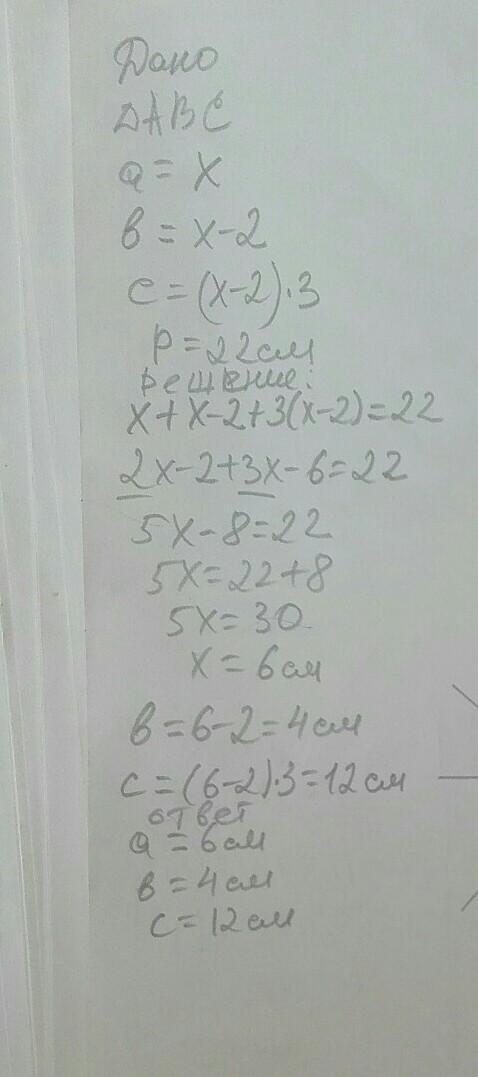 Дано
ΔABC
a = x
в = x-2
c = (x-2)·3
P = 22см
решение:
x+x-2+3(x-2)=22
2x-2+3x-6=22
5x-8=22
5x=22+8
5x=30
x=6см
в=6-2=4см
c=(6-2)·3=12см
ответ
a=6см
в=4см
c=12см